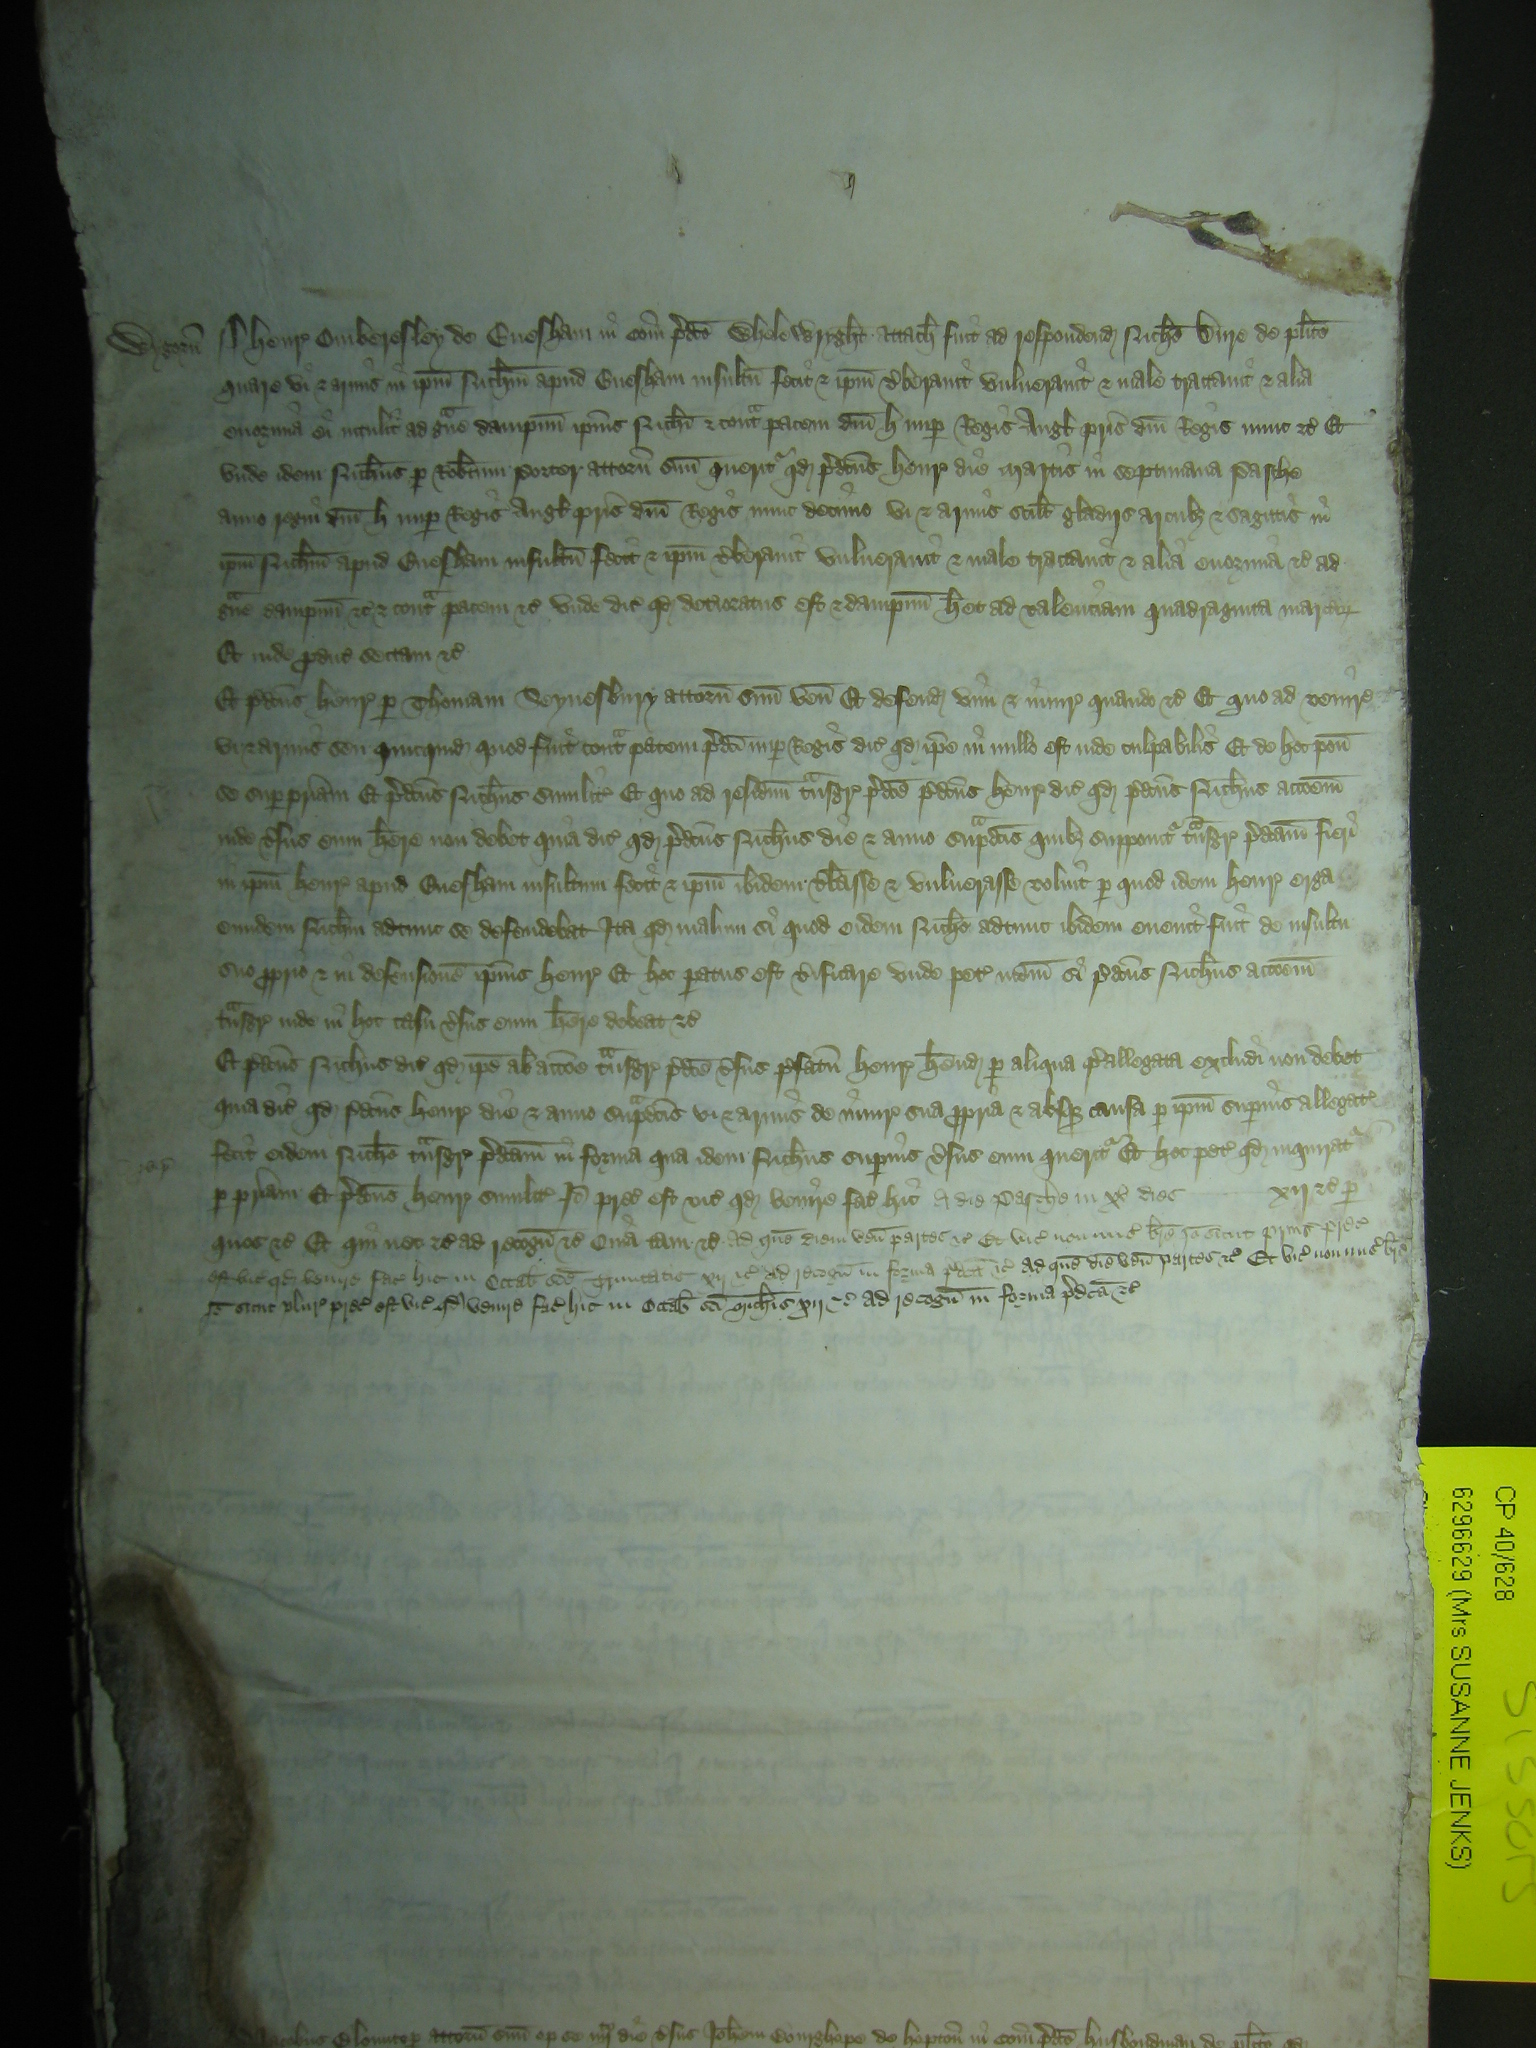 Wygorn̄ ¶ Henr̉ Ombersley de Euesham in com̄ p̄dc̄o Whelewryght attach̄ fuit ad respondend̉ Ric̄o Vire de pl̄ito
quare vi & armis in ip̄m Ric̄m apud Euesham insultū fecit & ip̄m v̄berauit vulnerauit & male tractauit & alia
enormia ei intulit ad g̃ue dampnū ip̄ius Ric̄i & cont̃ pacem dn̄i H nup̱ Regis Angl̄ pr̄is dn̄i Regis nunc &c̉ Et
vnde idem Ric̄us p̱ Rob̄tum Porter attorn̄ suū querit̉ qd̉ p̄dc̄us Henr̉ die martis in septimana Pasche
anno regni dn̄i H nup̱ Regis Angl̄ pr̄is dn̄i Regis nunc decimo vi & armis scil̄t gladiis arcub̉ & sagittis in
ip̄m Ric̄m apud Euesham insultū fecit & ip̄m v̄berauit vulnerauit & male tractauit & alia enormia &c̉ ad
g̃ue dampnū &c̉ & cont̃ pacem &c̉ Vnde dic̉ qd̉ det̉ioratus est & dampnū h̄et ad valenciam quadraginta marcar̉
Et inde p̱duc̉ sectam &c̉
Et p̄dc̄us Henr̉ p̱ Thomam attorn̄ suū ven̄ Et defend̉ vim & iniur̉ quando &c̉ Et quo ad venire
vi & armis seu quicquid quod fuit cont̃ pacem p̄dc̄i nup̱ Regis dic̉ qd̉ ip̄e in nullo est inde culpabilis Et de hoc pon̄
se sup̱ pr̄iam Et p̄dc̄us Ric̄us similit̉ Et quo ad residuū t̃nsgr̉ p̄dc̄e p̄dc̄us Henr̉ dic̉ qd̉ p̄dc̄us Ric̄us acc̄oem
inde v̄sus eum h̄ere non debet quia dic̉ qd̉ p̄dc̄us Ric̄us die & anno sup̃dc̄is quib̉ supponit̉ t̃nsgr̉ p̄dc̄am fieri
in ip̄m Henr̉ apud Euesham insultum fecit & ip̄m ibidem v̄b̄asse & vulnerasse voluit p̱ quod idem Henr̉ erga
eundem Ric̄m adtunc se defendebat Ita qd̉ malum si quod eidem Ric̄o adtunc ibidem euenit fuit de insultu
suo p̱prio & in defensione ip̄ius Henr̉ Et hoc p̱atus est v̄ificare vnde pet̉ iudm̄ si p̄dc̄us Ric̄us acc̄oem
t̃nsgr̉ inde in hoc casu v̄sus eum h̄ere debeat &c̉
Et p̄dc̄us Ric̄us dic̉ qd̉ ip̄e ab acc̄oe t̃nsgr̉ p̄dc̄e v̄sus p̄fatū Henr̉ h̄end̉ p̱ aliqua p̄allegata excludi non debet
quia dic̉ qd̉ p̄dc̄us Henr̉ die & anno sup̃dc̄is vi & armis de iniur̉ sua p̱pria & absq̉ causa p̱ ip̄m sup̱ius allegat̉
fecit eidem Ric̄o t̃nsgr̉ p̄dc̄am in forma qua idem Ric̄us sup̱ius v̄sus eum querit̉ Et hoc pet̉ qd̉ inquirat̉
p̱ pr̄iam Et p̄dc̄us Henr̉ similit̉ Iō prec̉ est vic̉ qd̉ venire fac̉ hic A die Pasche in xv dies xii &c̉ p̱
quos &c̉ Et qui nec &c̉ ad recogn̄ &c̉ Quia tam &c̉ Ad quē diem ven̄ partes &c̉ Et vic̉ non mis̉ br̄e Iō sicut prius prec̉
est vic̉ qd̉ venire fac̉ hic in Octab̉ sc̄e Trinitatis xii &c̉ Ad recogn̄ in forma p̄dc̄a &c̉ Ad quē diē ven̄ partes &c̉ Et vic̉ non mis̉ br̄e
Iō sicut plur̉ prec̉ est vic̉ qd̉ venire fac̉ hic in Octab̉ sc̄i Mich̄is xii &c̉ Ad recogn̄ in forma p̄dc̄a &c̉
attorn̄ suū op̉ se iiij die v̄sus Joh̄em de Hopton̄ in com̄ p̄dc̄o husbondman de pl̄ito qd̉
CP 40/628
6296629 (Mrs SUSANNE JENKS)